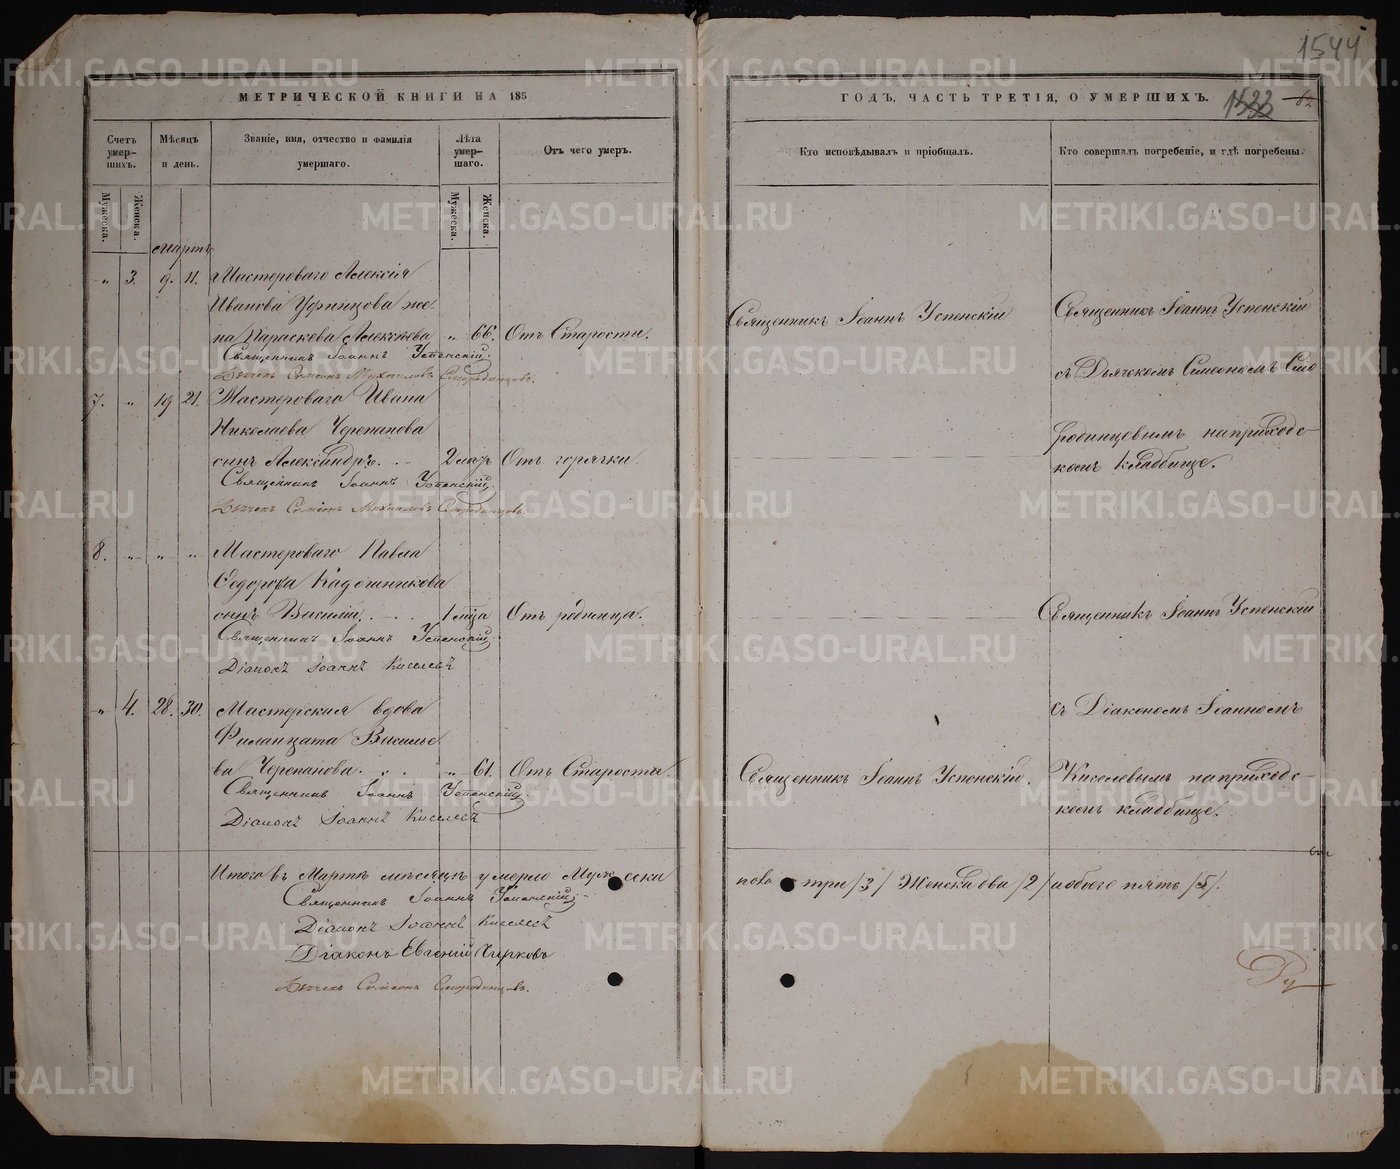 1544
МЕТРИЧЕСКОЙ КНИГИ НА 185
ГОДЪ, ЧАСТЬ ТРЕТІЯ, О УМЕРШИХЪ.
1533
Счетъ умер-
шихъ.
Мѣсяцъ
и день.
Званіе, имя, отчество и фамилія
умершаго.
Лѣта
умер-
шаго.
Отъ чего умеръ.
Кто исповѣдывалъ и пріобщалъ.
Кто совершалъ погребеніе, и гдѣ погребены.
Мужеска.
Женска.
Мужеска.
Женска.
Мартъ
" 3. 9. 11. Мастероваго Алексія
Иванова Уфинцова же-
на Параскева Алексѣева " 66. Отъ Старости.
Священникъ Іоаннъ Успенскій
Священникъ Іоаннъ Успенскій
Священникъ Іоаннъ Успенскій.
Дьячекъ Симеонъ Михайловъ Смородинцовъ.
съ Дьячекомъ Симеономъ Смо
7. " 19 21. Мастероваго Ивана
Николаева Черепанова
родинцевымъ на приходс-
сынъ Александръ. 2 мѣц. Отъ горячки.
комъ Кладбище.
Священникъ Іоаннъ Успенскій.
Дьячекъ Симеонъ Михайловъ Смородинцовъ.
8. " " " Мастероваго Павла
Ѳедорова Кадочникова
сынъ Василій. 1 мѣца Отъ родимца.
Священникъ Іоаннъ Успенскій
Священникъ Іоаннъ Успенскій.
Діаконъ Іоаннъ Киселевъ
" 4. 28. 30. Мастерская вдова
съ Діакономъ Іоанномъ
Филанцата Василье
ва Черепанова. " 61. Отъ Старости.
Священникъ Іоаннъ Успенскій.
Киселевымъ на приходс-
Священникъ Іоаннъ Успенскій.
комъ кладбище.
Діаконъ Іоаннъ Киселевъ
Итого въ Мартѣ мѣсяцѣ умерло Мужеска
пола три /3/ Женска два /2/ и обоего пять /5/.
Священникъ Іоаннъ Успенскій.
Діаконъ Іоаннъ Киселевъ
Діаконъ Евгеній Чирковъ
Дьячекъ Симеонъ Смородинцовъ.
METRIKI.GASO-URAL.RU